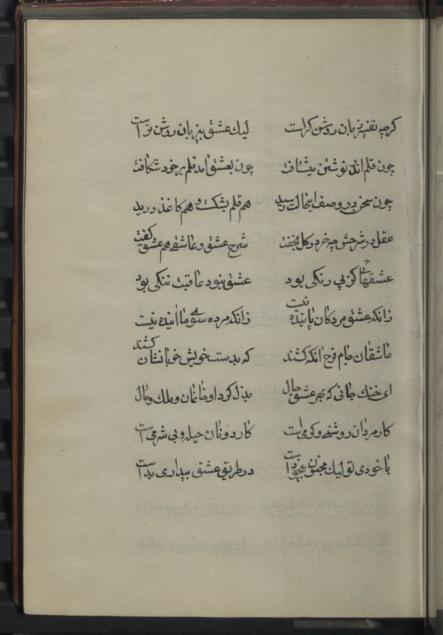 کرچه تفسیر زبان روشن کراست لیک عشق بیزبان روشن تر است
چون قلم اندر نوشتن میشتافت چون بعشق امد قلم بر خود شکافت
چون سخن در وصف اینحالت رسید هم قلم بشکست و هم کاغذ درید
عقل در شرحش چه خر در کل بخفت شرح عشق و عاشقی هم عشق کفت
عشقهائی کز پی رنکی بود عشق نبود عاقبت ننکی بود
زانکه عشق مردکان پاینده نیست زانکه مرده سوی ما اینده نیست
عاشقان جام فرح انکه کشند که بدست خویش خوبانشان کشند
ای خنک جانی که بهر عشق و حال بذل کرد او خانمان و ملک و مال
کار مردان روشنی و کرمی است کار دونان حیله و بی شرمی است
با خودی تو لیک مجنون بیخود است در طریق عشق بیداری بد است